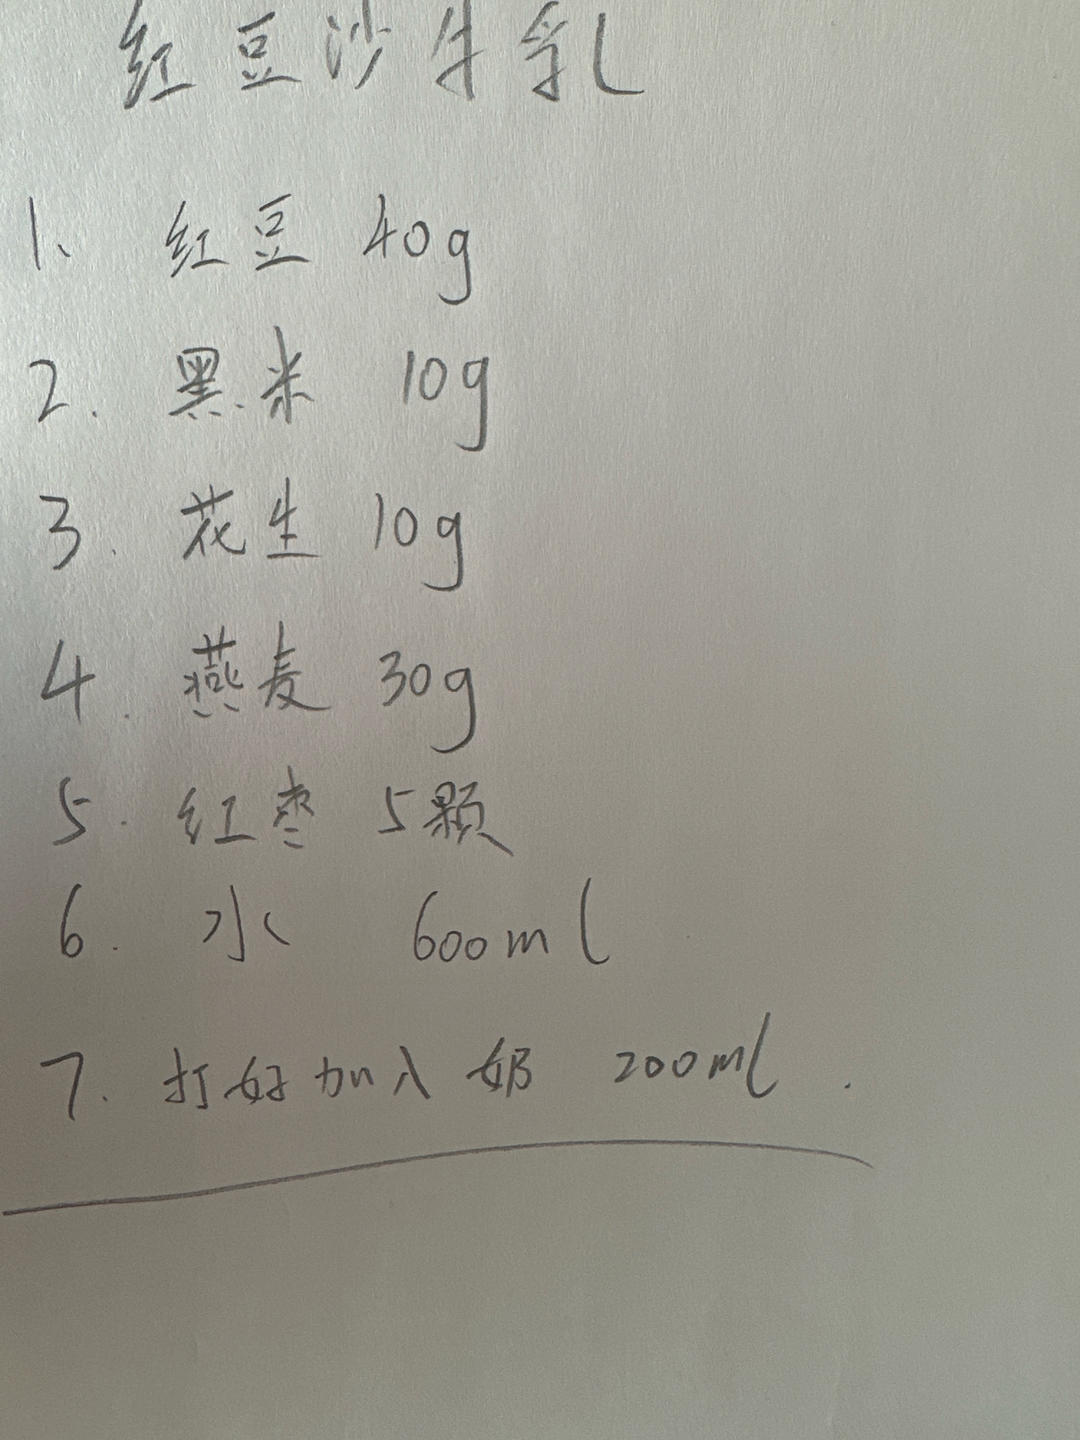 红豆沙牛乳
1、红豆 40g
2. 黑米 10g
3. 花生 10g
4. 燕麦 30g
5. 红枣 5颗
6. 水 600ml
7. 打好加入奶 200ml.